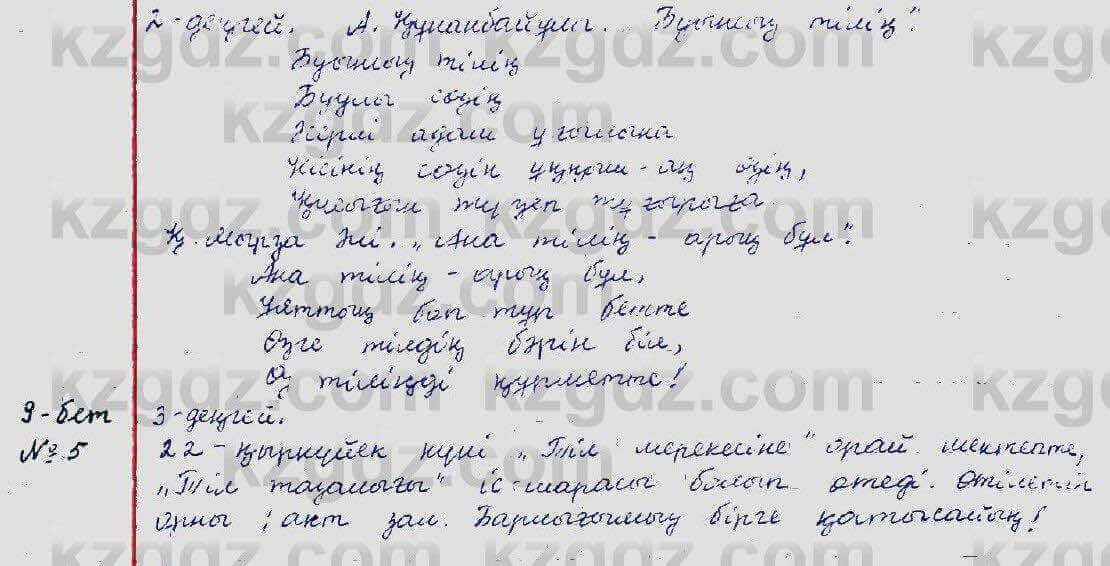 2-деңгей. А. Құнанбайұлы. "Бұтыңның тілің".
тілің
Буулы сөзің
Әсірелі адам ұғылына
Кісінің сөзін ұққыш-ақ өзің,
Қисығын түзеп тұғырыға
Қ. Мырза Әлі. "Ана тілің - арың бұл".
Ана тілің - арың бұл,
Ұяттың боп тұр бетте
Өзге тілдің бәрін біл,
Өз тіліңді құрметте!
9-бет 3-деңгей.
№5 22-қыркүйек күні "Тіл мерекесіне" орай мектепте,
"Тіл тазалығы" іс-шарасы болып өтеді. Өтілетін
орны: акт зал. Барлығымыз бірге қатысайық!
kzgdz.com